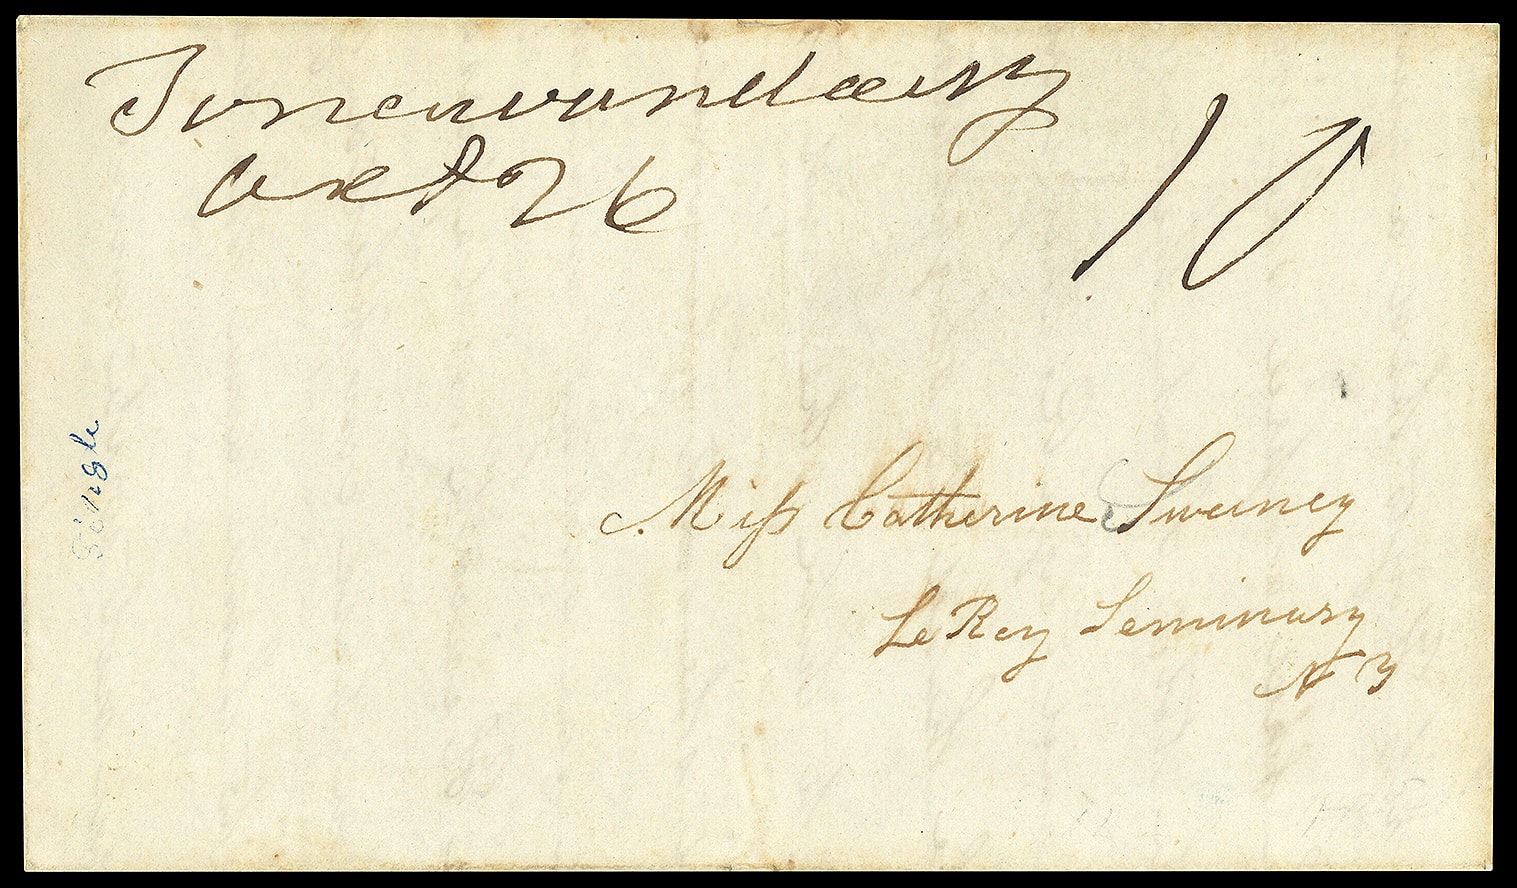 Tonawanda NY
Oct 26
10
Single
Miss Catherine Sweeney
Le Roy Seminary
N Y